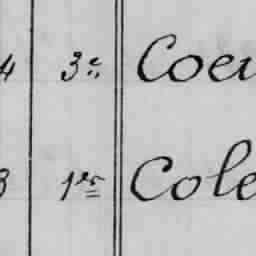 4 3e Coeu
3 1er Cole